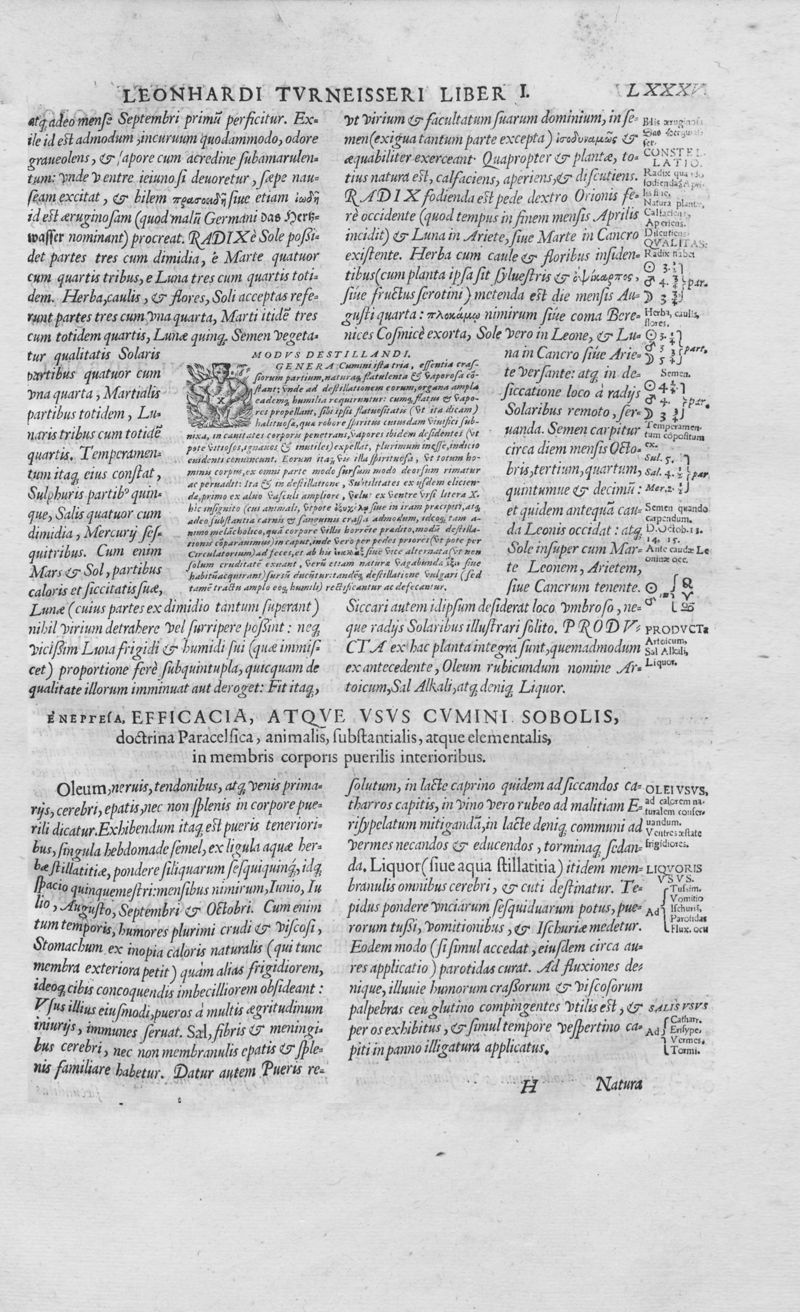 LEONHARDI TVRNEISSERI LIBER I.
atq; adeo mense Septembri primũ perficitur. Ex-
ile id est admodum, incuruum quodammodo, odore
graueolens, & sapore cum acredine subamarulen-
tum: vnde ventre ieiuno si deuoretur, sæpe nau-
seam excitat, & bilem πρασοειδῆ siue etiam ἰωδη
id est æruginosam (quod malũ Germani das Hertz-
wasser nominant) procreat. RADIX è Sole possi-
det partes tres cum dimidia, è Marte quatuor
cum quartis tribus, e Luna tres cum quartis toti-
dem. Herba, caulis, & flores, Soli acceptas refe-
runt partes tres cum vna quarta, Marti itidẽ tres
cum totidem quartis, Lunæ quinq;. Semen vegeta-
tur qualitatis Solaris
partibus quatuor cum
vna quarta, Martialis
partibus totidem, Lu-
naris tribus cum totidẽ
quartis. Temperamen-
tum itaq; eius constat,
Sulphuris partibꝰ quin-
que, Salis quatuor cum
dimidia, Mercurij ses-
quitribus. Cum enim
Mars & Sol, partibus
caloris et siccitatis suæ,
Lunæ (cuius partes ex dimidio tantum superant)
nihil virium detrahere vel surripere possint: neq;
vicissim Luna frigidi & humidi sui (quæ immis
cet) proportione ferè subquintupla, quicquam de
qualitate illorum imminuat aut deroget: Fit itaq;,
MODVS DESTILLANDI.
GENERA Cumini ista tria, essentia cras-
siorum partium, naturaq; flatulenta & vaporosa cõ-
stant: vnde ad destillationem eorum, organa ampla
eademq; humilia requiruntur: cumq; flatus & vapo-
res propellant, sibi ipsi flatuositatis (vt ita dicam)
halituosa, qua robore spiritus cuiusdam viuifici sub-
nixa, in cauitates corporis penetrans, vapores ibidem desidentes (vt
pote vitiosos, ignauos & inutiles) expellat, plurimum inesse, indicio
euidenti conuincunt. Eorum itaq; vis illa spirituosa, vt totum ho-
minis corpus, ex omni parte modo sursum modo deorsum rimatur
ac peruadit: Ita & in destillatione, Subtilitates ex ijsdem elicien-
dæ, primo ex aluo vasculi ampliore, velut ex ventre vrsi litera X.
hic insignito (cui animali, vtpote siue in iram præcipiti, atq;
adeo substantia carnis & sanguinis crassa admodum, ideoq; tam a-
nimo melãcholico, quã corpore villis horrẽte prædito, modũ destilla-
tionis cõparauimus) in caput, inde vero per pedes priores (vt pote per
Circulatorium) ad feces, et ab his siue vice alternata (vt non
solum cruditatẽ exeant, verũ etiam natura vagabunda siue
habitũ acquirant) sursũ ducũtur: tandẽq; destillatione vulgari (sed
tamẽ tractu amplo eoq; humili) rectificantur ac defecantur.
LXXXV
vt virium & facultatum suarum dominium, in se-
men (exigua tantum parte excepta) ἰσοδυναμῶς &
æquabiliter exerceant. Quapropter & plantæ, to-
tius natura est, calfaciens, aperiens, & discutiens.
RADIX fodienda est pede dextro Orionis fe-
rè occidente (quod tempus in finem mensis Aprilis
incidit) & Luna in Ariete, siue Marte in Cancro
existente. Herba cum caule & floribus insiden-
tibus (cum planta ipsa sit syluestris & ὀψίκαρπος,
siue fructus serotini) metenda est die mensis Au-
gusti quarta: πλοκάμῳ nimirum siue coma Bere-
nices Cosmicè exorta, Sole vero in Leone, & Lu-
na in Cancro siue Arie-
te versante: atq; in de-
siccatione loco à radijs
Solaribus remoto, ser-
uanda. Semen carpitur
circa diem mensis Octo-
bris, tertium, quartum,
quintumue & decimũ:
et quidem antequã cau-
da Leonis occidat: atq;
Sole insuper cum Mar-
te Leonem, Arietem,
siue Cancrum tenente.
Siccari autem idipsum desiderat loco vmbroso, ne-
que radijs Solaribus illustrari solito. PRODV-
CTA ex hac planta integra sunt, quemadmodum
ex antecedente, Oleum rubicundum nomine Ar-
toicum, Sal Alkali, atq; deniq; Liquor.
Bilis ærugino
CONSTEL-
LATIO.
Radix quãdo
fodienda: Apri-
lis fine.
Natura plantæ,
Calfaciens,
Aperiens,
Discutiens.
QVALITAS:
Radix habet
☉ 3.
♂ 4. par.
☽ 3
Herba, caulis,
flores.
☉ 3.
♂ 3 part.
☽ 5
Semen.
☉ 4
♂ 4. par.
☽ 3
Temperamen-
tum cõpositum
ex.
Sul. 5.
Sal. 4. par
Mer. 2.
Semen quando
carpendum.
D. Octob. 13.
14. 15.
Ante caudæ Le
oninæ occ.
☉ ♌
♂ ♈
♋
PRODVCTA
Artoicum,
Sal Alkali,
Liquor.
EFFICACIA, ATQVE VSVS CVMINI SOBOLIS,
doctrina Paracelsica, animalis, substantialis, atque elementalis,
in membris corporis puerilis interioribus.
Oleum, neruis, tendonibus, atq; venis prima-
rijs, cerebri, epatis, nec non splenis in corpore pue-
rili dicatur. Exhibendum itaq; est pueris teneriori-
bus, singula hebdomade semel, ex ligula aquæ her-
bæ stillatitiæ, pondere siliquarum sesquiquinq;, idq;
spacio quinquemestri: mensibus nimirum, Iunio, Iu
lio, Augusto, Septembri & Octobri. Cum enim
tum temporis, humores plurimi crudi & viscosi,
Stomachum ex inopia caloris naturalis (qui tunc
membra exteriora petit) quàm alias frigidiorem,
ideoq; cibis concoquendis imbecilliorem obsideant:
Vsus illius eiusmodi, pueros à multis ægritudinum
iniurijs, immunes seruat. Sal, fibris & meningi-
bus cerebri, nec non membranulis epatis & sple-
nis familiare habetur. Datur autem Pueris re-
solutum, in lacte caprino quidem ad siccandos ca-
tharros capitis, in vino vero rubeo ad malitiam E-
risypelatum mitigandã, in lacte deniq; communi ad
vermes necandos & educendos, torminaq; sedan-
da. Liquor (siue aqua stillatitia) itidem mem-
branulis omnibus cerebri, & cuti destinatur. Te-
pidus pondere vnciarum sesquiduarum potus, pue-
rorum tussi, vomitionibus, & Ischuriæ medetur.
Eodem modo (si simul accedat, eiusdem circa au-
res applicatio) parotidas curat. Ad fluxiones de-
nique, illuuie humorum crassorum & viscosorum
palpebras ceu glutino compingentes vtilis est, &
per os exhibitus, & simul tempore vespertino ca-
piti in panno illigatura applicatus.
OLEI VSVS,
ad calorem na-
turalem conser-
uandum.
Ventres æstate
frigidiores.
LIQVORIS
VSVS.
Ad Tussim.
Vomitio
Ischuriã,
Parotidas
Flux. ocu
SALIS VSVS
Ad Cathar.
Erisype.
Vermes,
Tormi.
H
Natura